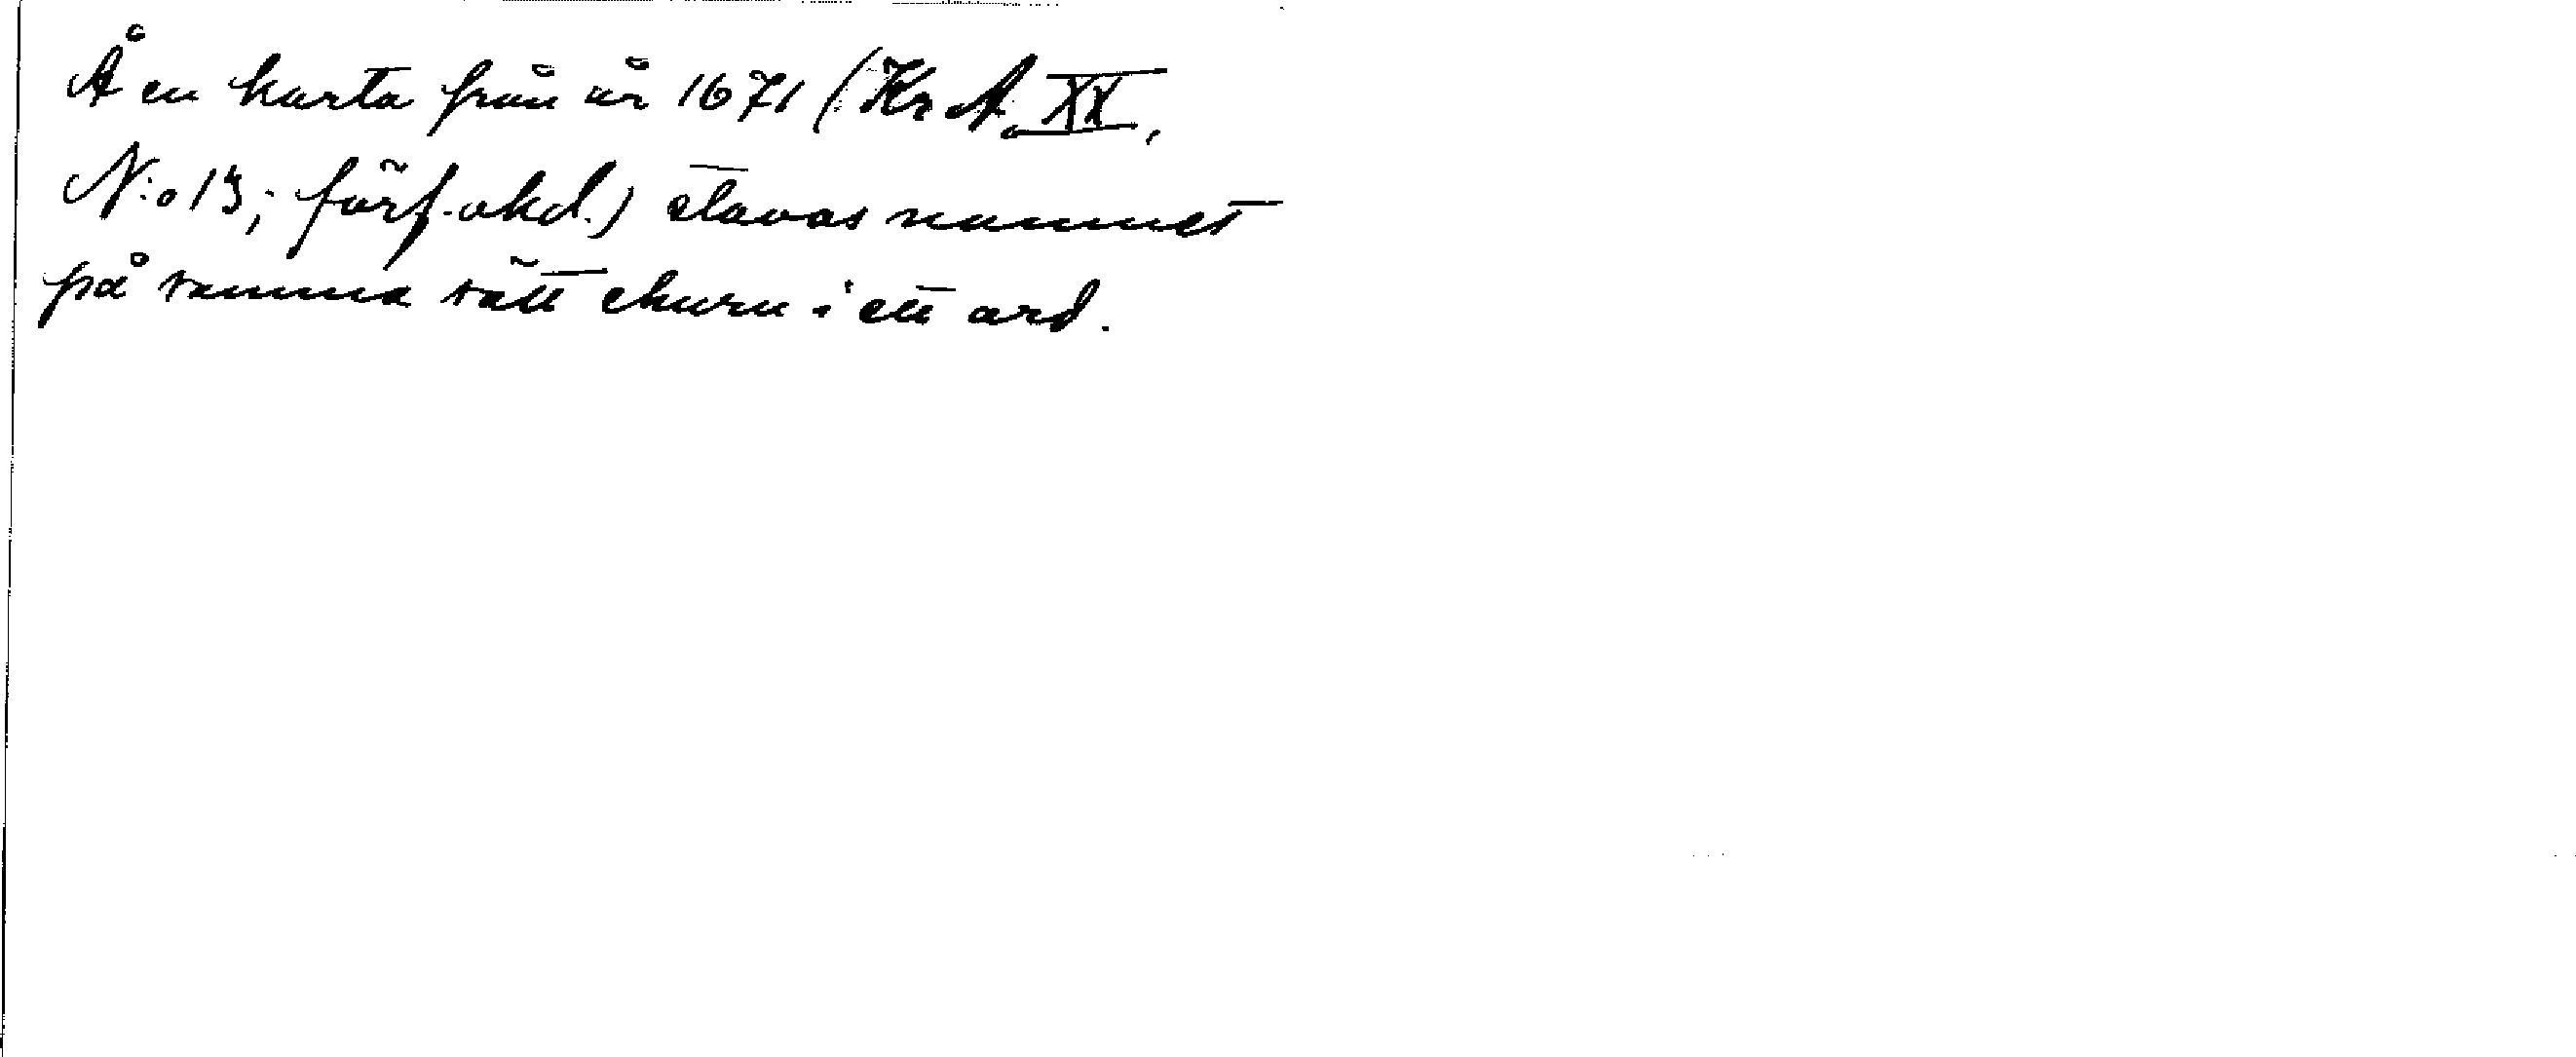 Å en karta från år 1671 (Kr A. XX,
N:o 13; förf. okd.) stavas namnet
på samma sätt ehuru i ett ord.